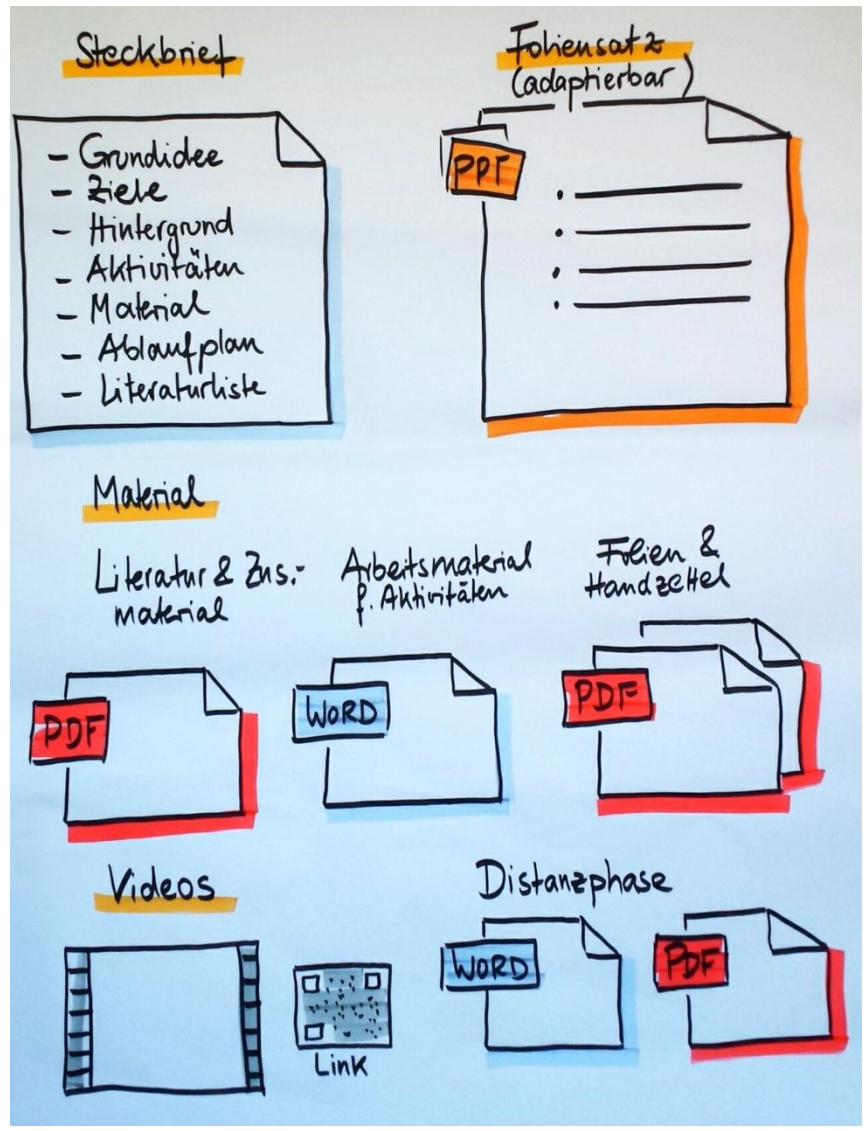 Steckbrief
- Grundidee
- Ziele
- Hintergrund
- Aktivitäten
- Material
- Ablaufplan
- Literaturliste
Foliensatz
(adaptierbar)
PPT
Material
Literatur & Zus.-
material
PDF
Arbeitsmaterial
f. Aktivitäten
WORD
Folien &
Handzettel
PDF
Videos
Link
Distanzphase
WORD
PDF